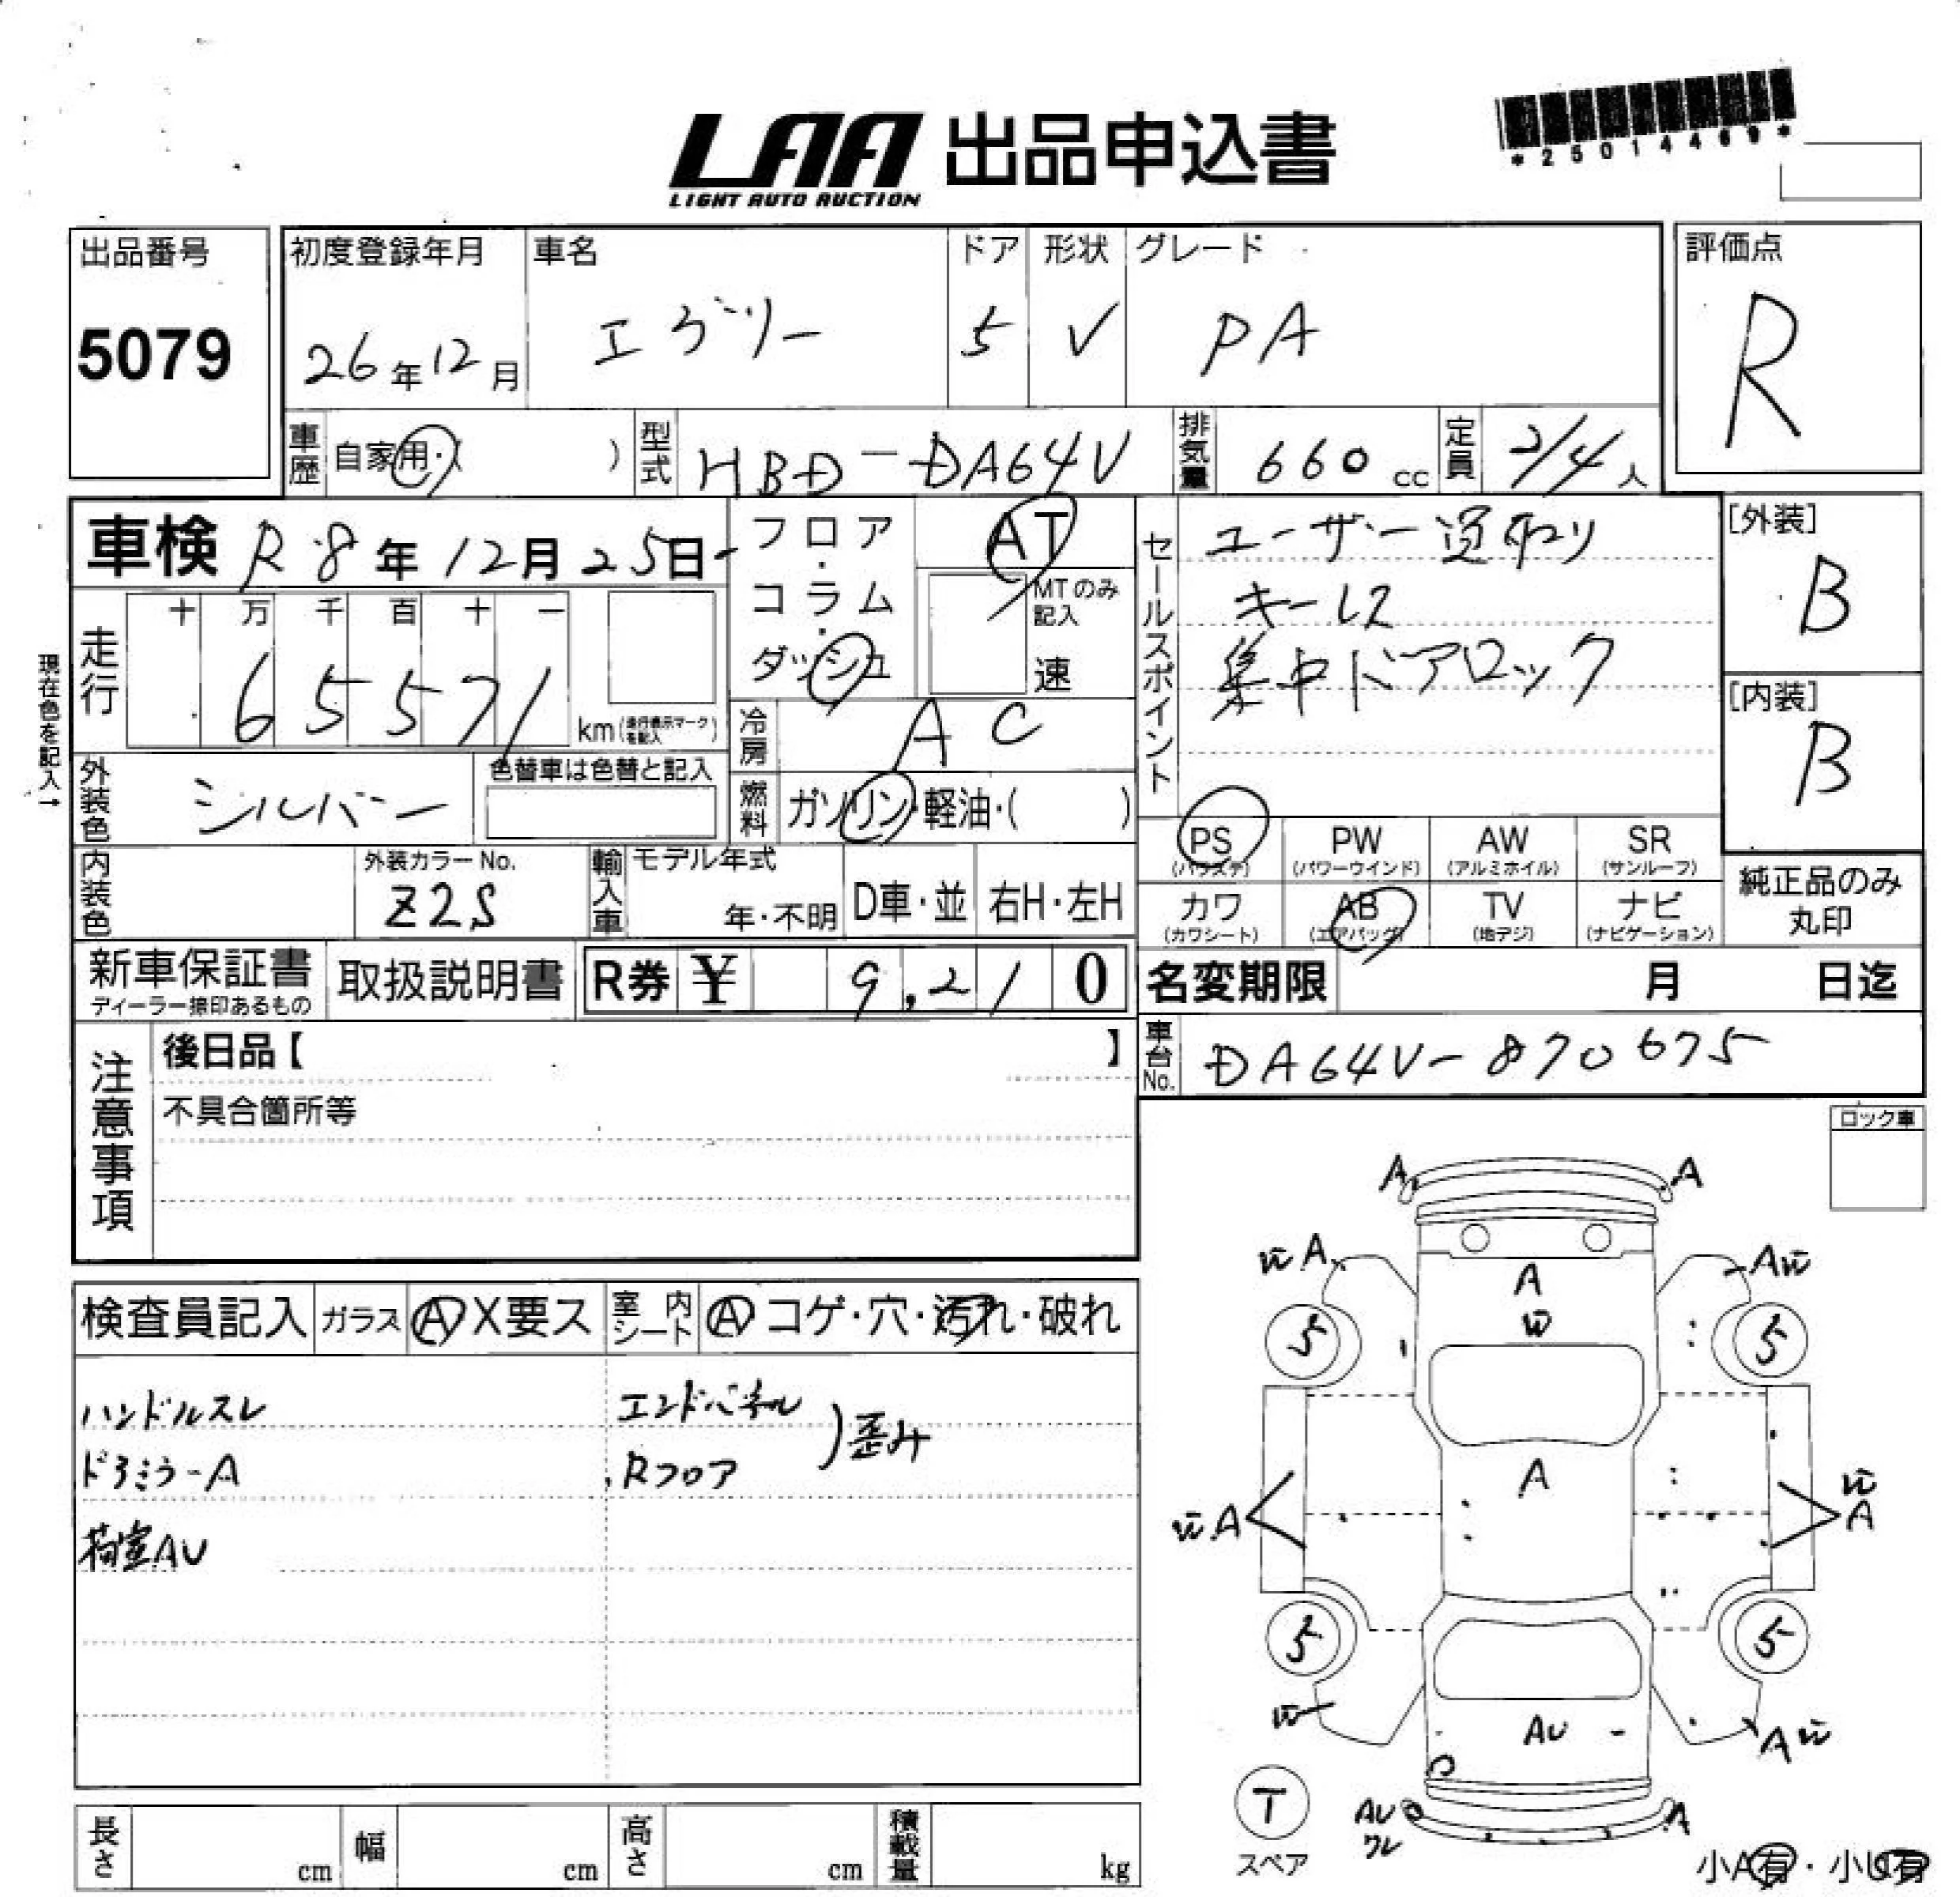 LAA 出品申込書
LIGHT AUTO AUCTION
*25014469*
出品番号
5079
初度登録年月
26年12月
車名
エブリー
ドア
5
形状
V
グレード
PA
評価点
R
車歴 自家用・( )
型式 HBD-DA64V
排気量 660 cc
定員 2/4人
車検 R8年12月25日
フロア・コラム・ダッシュ
AT
MTのみ記入
速
セールスポイント
ユーザー買取り
キーレス
集中ドアロック
[外装]
B
[内装]
B
現在色を記入→
走行
十 万 千 百 十 一
65571
km(走行表示マークを記入)
冷房 AC
外装色 シルバー
色替車は色替と記入
燃料 ガソリン・軽油・( )
PS
(パワステ)
PW
(パワーウインド)
AW
(アルミホイル)
SR
(サンルーフ)
カワ
(カワシート)
AB
(エアバッグ)
TV
(地デジ)
ナビ
(ナビゲーション)
純正品のみ
丸印
内装色
外装カラーNo.
Z2S
輸入車
モデル年式
年・不明
D車・並
右H・左H
新車保証書
ディーラー捺印あるもの
取扱説明書
R券 ¥ 9,210
名変期限 月 日迄
車台No. DA64V-870675
注意事項
後日品【 】
不具合箇所等
ロック車
検査員記入
ガラス A X要ス
室内シート A コゲ・穴・汚れ・破れ
ハンドルスレ
エンドパネル
ドアミラーA
Rフロア
歪み
荷室AU
A A
W A
A W
A
W
5 5
A
W A
W
A
5 5
W
AU
A W
T
スペア
AU
ワレ
A
小A有・小U有
長さ cm
幅 cm
高さ cm
積載量 kg